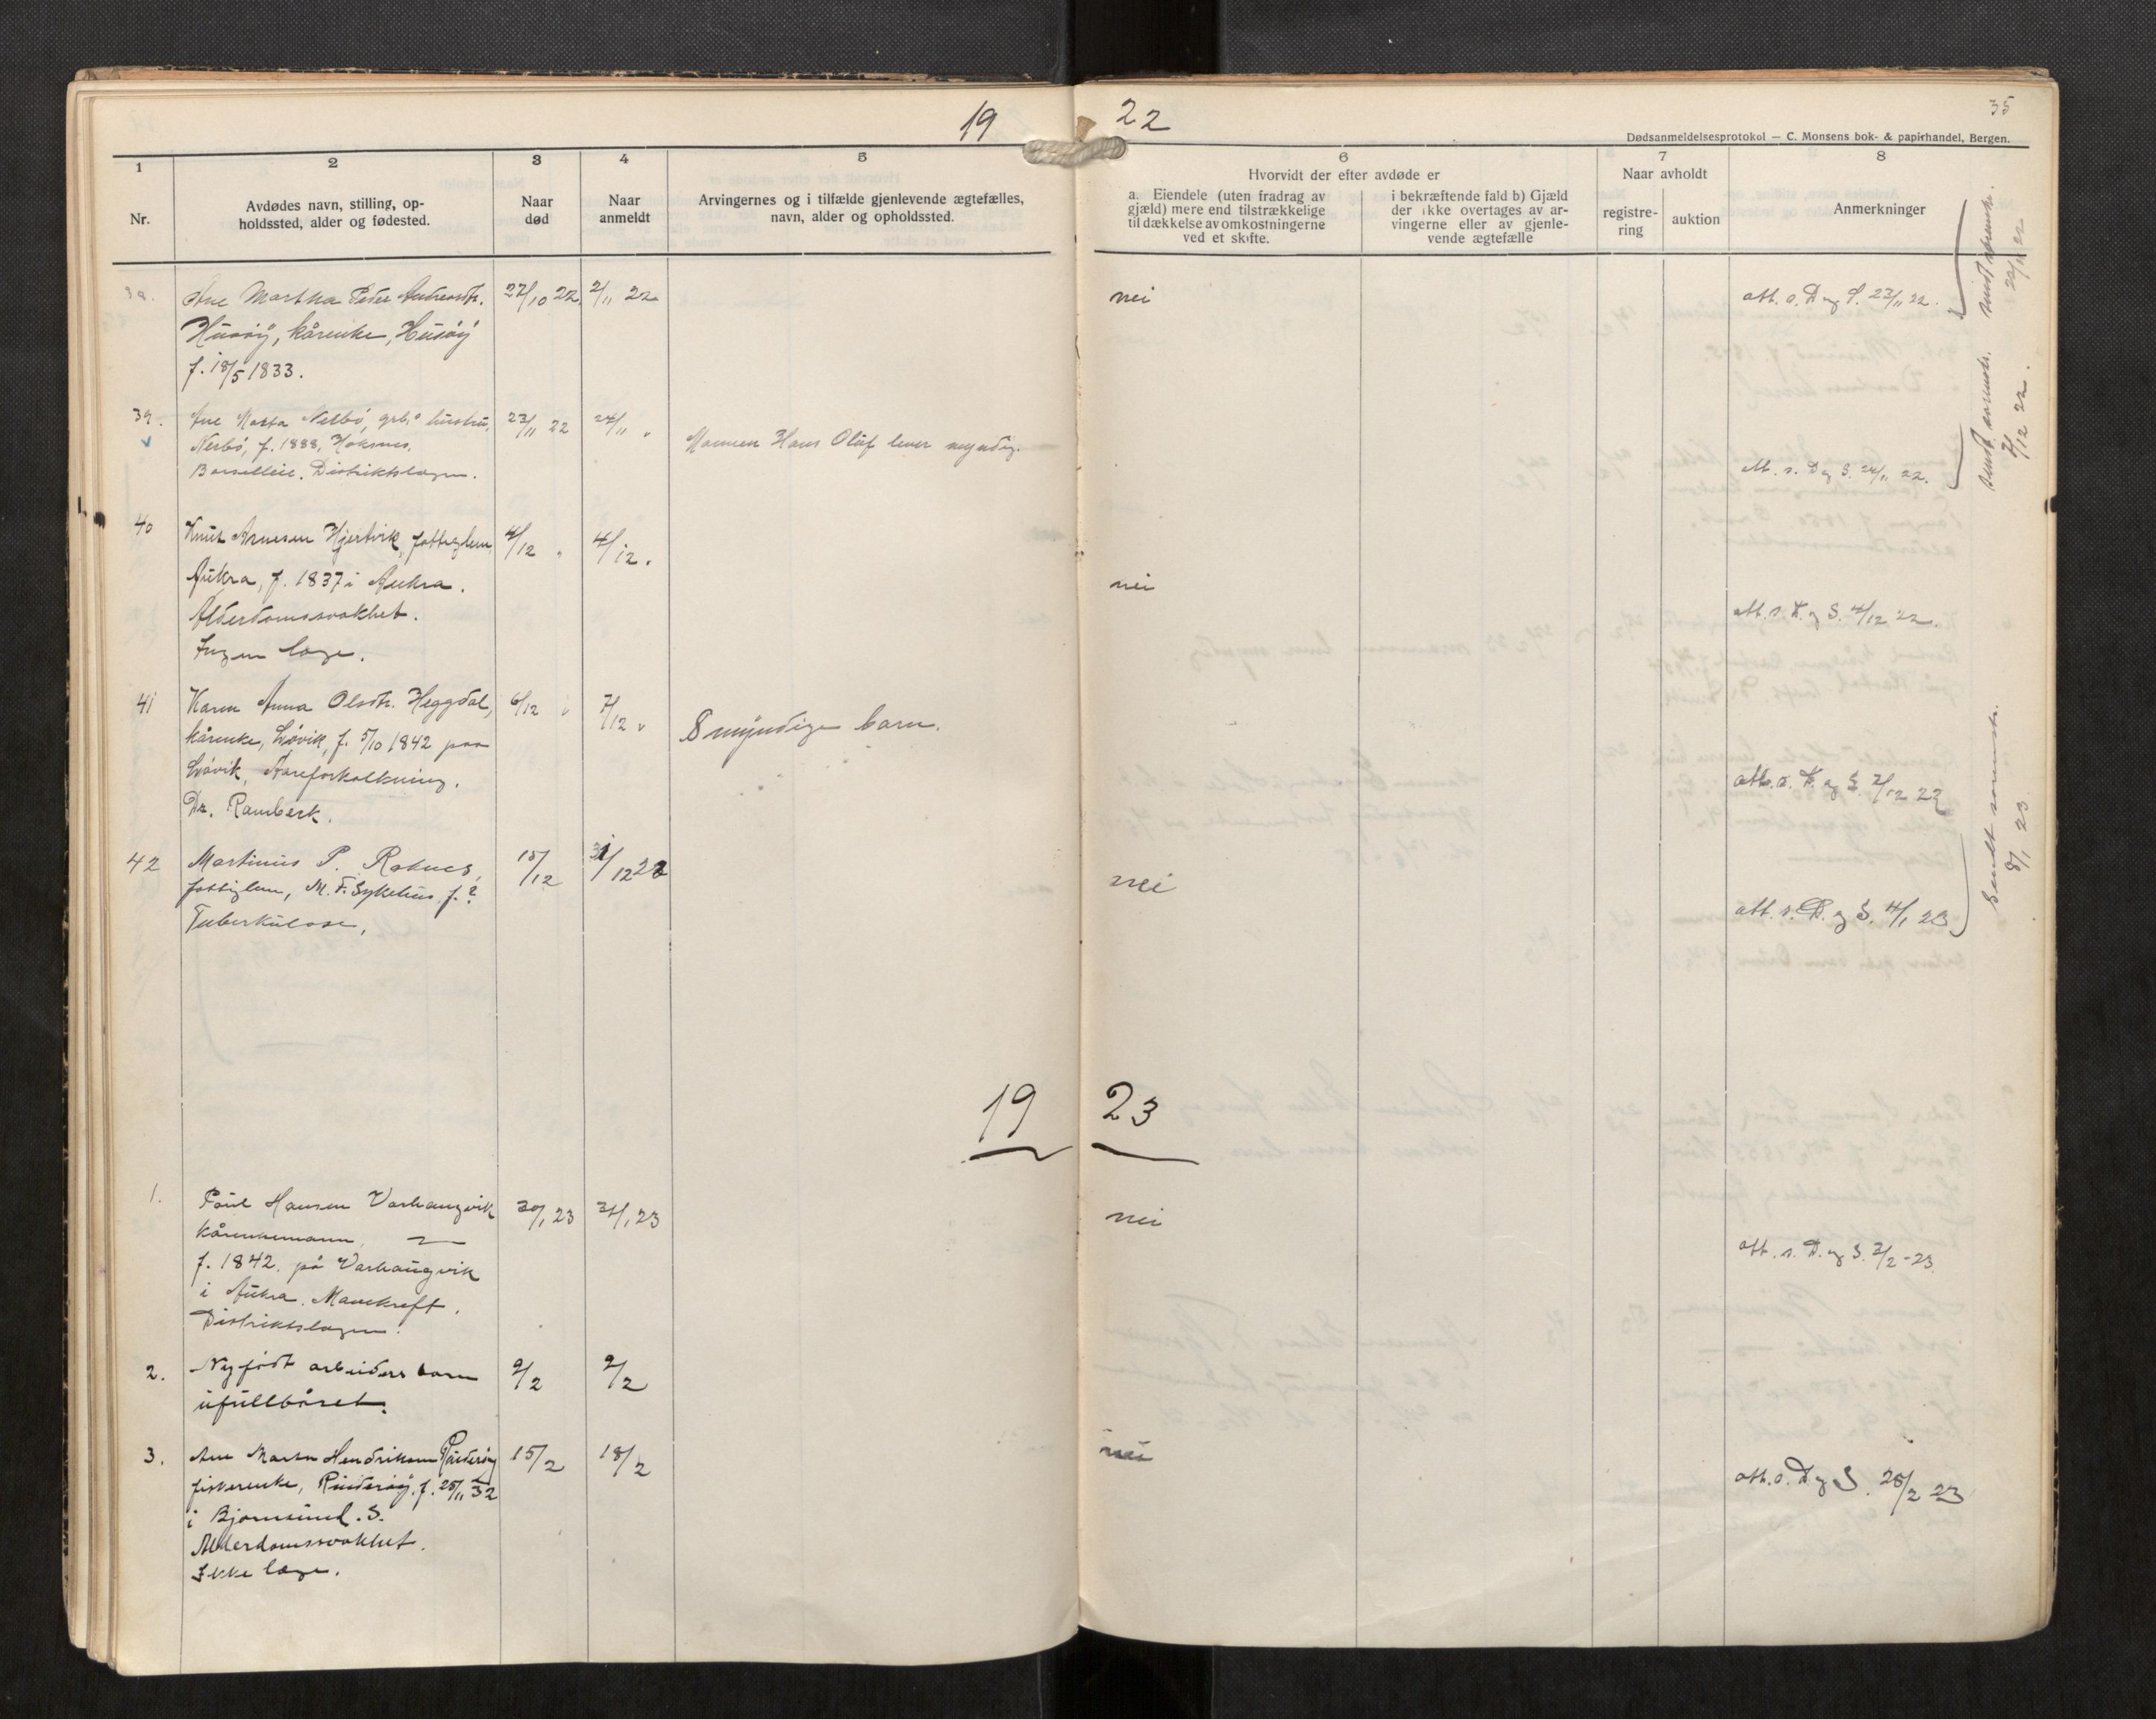 19 22
35
Dødsanmeldelsesprotokol — C. Monsens bok- & papirhandel, Bergen.
1
Nr.
2
Avdødes navn, stilling, op-
holdssted, alder og fødested.
3
Naar
død
4
Naar
anmeldt
5
Arvingernes og i tilfælde gjenlevende ægtefælles,
navn, alder og opholdssted.
6
Hvorvidt der efter avdøde er
a. Eiendele (uten fradrag av
gjæld) mere end tilstrækkelige
til dækkelse av omkostningerne
ved et skifte.
i bekræftende fald b) Gjæld
der ikke overtages av ar-
vingerne eller av gjenle-
vende ægtefælle
7
Naar avholdt
registre-
ring
auktion
8
Anmerkninger
38. Ane Martha Peder Andreasdtr. 27/10 22. 2/11 22 nei att. s. D og S. 23/11 22.
Husøy, kårenke, Husøy
f. 18/5 1833.
39. Ane Marta Nerbø, grbr. hustru, 23/11 22 24/11 "
Nerbø, f. 1888, Hoksnes, Mannen Hans Oluf lever myndig.
Barselleie. Distriktslægen. att. s. D og S. 24/11 22.
40 Knut Arnesen Hjertvik, fattiglem 4/12 " 4/12 "
Aukra, f. 1837 i Aukra. nei
Alderdomssvakhet. att. s. D. og S. 4/12 22.
Ingen læge.
41 Karen Anna Olsdtr. Heggdal, 6/12 " 7/12 " 8 myndige barn.
kårenke, Løvik, f. 5/10 1842 paa
Løvik, Aareforkalkning. att. s. D. og S. 7/12 22
Dr. Ramberk.
42 Martinus P. Raknes, 15/12 31/12 22 nei
fattiglem, M. F. Sykehus, f. ? att. s. D. og S. 4/1 23
Tuberkulose,
22/11 22
7/12 22.
Sendt sorenskr.
8/1 23
19 23
1. Paul Hansen Varhaugvik 30/1 23 31/1 23 nei
kårenkemann,
f. 1842. på Varhaugvik att. s. D. og S. 2/2 - 23.
i Aukra. Mavekreft.
Distriktslægen.
2. Nyfødt arbeiders barn 9/2 9/2
ufullbåret.
3. Ane Marta Hendriksen Rindarøy 15/2 18/2 nei
fiskerenke, Rindarøy. f. 25/11 32 att. s. D og S. 25/2 23
i Bjørnsund. S.
Alderdomssvakhet.
Ikke læge.